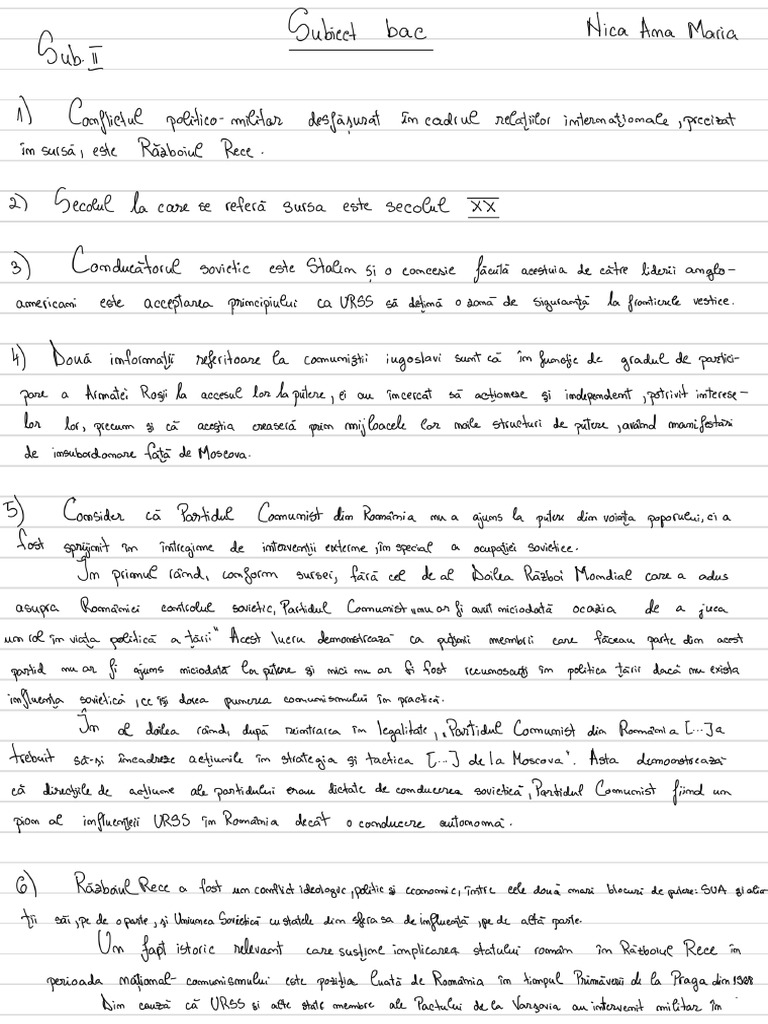 Subiect bac
Nica Ana Maria
Sub. II
1) Conflictul politico-militar desfășurat în cadrul relațiilor internaționale, precizat
în sursă, este Războiul Rece.
2) Secolul la care se referă sursa este secolul XX
3) Conducătorul sovietic este Stalin și o concesie făcută acestuia de către liderii anglo-
americani este acceptarea principiului ca URSS să dețină o zonă de siguranță la frontierele vestice.
4) Două informații referitoare la comuniștii iugoslavi sunt că în funcție de gradul de partici-
pare a Armatei Roșii la accesul lor la putere, ei au încercat să acționeze și independent, potrivit interese-
lor lor, precum și că aceștia creaseră prin mijloacele lor noile structuri de putere, având manifestări
de insubordonare față de Moscova.
5) Consider că Partidul Comunist din România nu a ajuns la putere din voința poporului, ci a
fost sprijinit în întregime de intervenții externe, în special a ocupației sovietice.
În primul rând, conform sursei, fără cel de-al Doilea Război Mondial care a adus
asupra României controlul sovietic, Partidul Comunist „nu ar fi avut niciodată ocazia de a juca
un rol în viața politică a țării" Acest lucru demonstrează ca puținii membrii care făceau parte din acest
partid nu ar fi ajuns niciodată la putere și nici nu ar fi fost recunoscuți în politica țării dacă nu exista
influența sovietică, ce își dorea punerea comunismului în practică.
În al doilea rând, după reintrarea în legalitate, „Partidul Comunist din România [...] a
trebuit să-și încadreze acțiunile în strategia și tactica [...] de la Moscova". Asta demonstrează
că direcțiile de acțiune ale partidului erau dictate de conducerea sovietică, Partidul Comunist fiind un
pion al influenței URSS în România decât o conducere autonomă.
6) Războiul Rece a fost un conflict ideologic, politic și economic, între cele două mari blocuri de putere: SUA și alia-
ții săi, pe de o parte, și Uniunea Sovietică cu statele din sfera sa de influență, pe de altă parte.
Un fapt istoric relevant care susține implicarea statului român în Războiul Rece în
perioada național-comunismului este poziția luată de România în timpul Primăverii de la Praga din 1968
Din cauză că URSS și alte state membre ale Pactului de la Varșovia au intervenit militar în